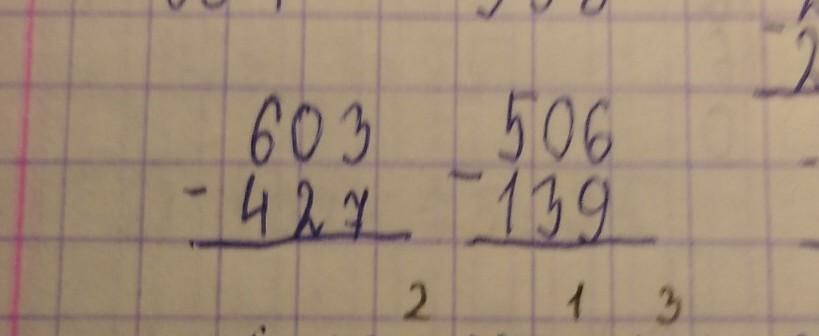 603 506
- 427 - 139
2 1 3